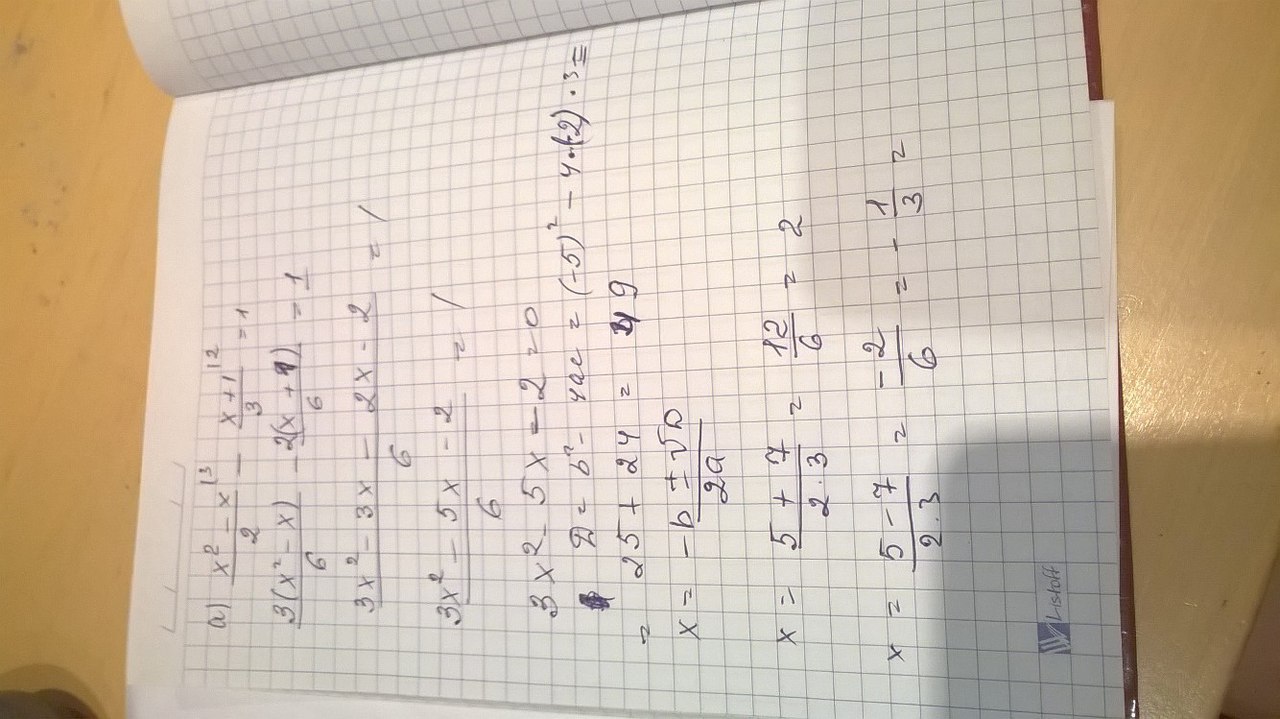 а) x² - x |3 / 2 - x + 1 |2 / 3 = 1
3(x² - x) / 6 - 2(x + 1) / 6 = 1
3x² - 3x - 2x - 2 / 6 = 1
3x² - 5x - 2 / 6 = 1
3x² - 5x - 2 = 0
D = b² - 4ac = (-5)² - 4·(-2)·3 =
= 25 + 24 = 49
x = -b ± √D / 2a
x = 5 + 7 / 2·3 = 12 / 6 = 2
x = 5 - 7 / 2·3 = -2 / 6 = -1 / 3 =
Listoff